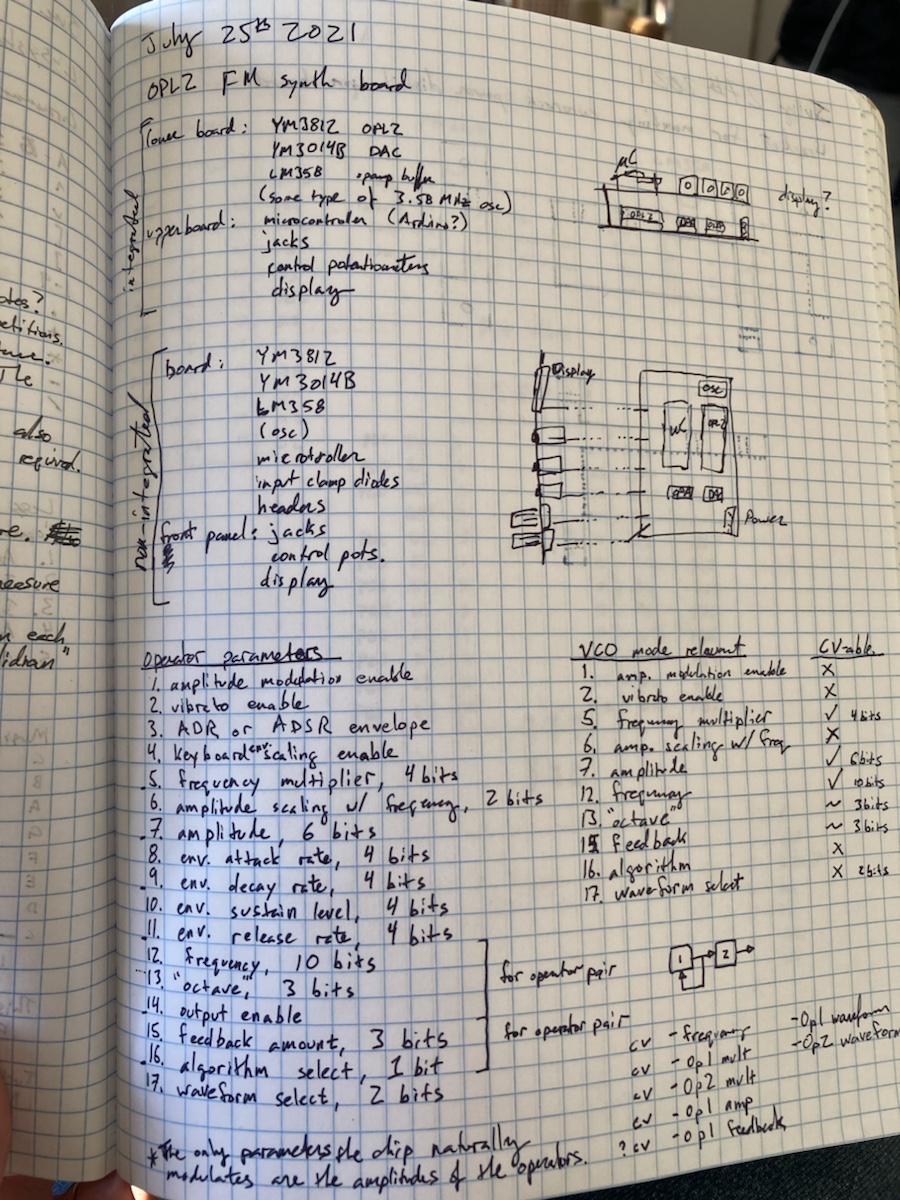 July 25th 2021
OPL2 FM synth board
integrated
lower board: YM3812 OPL2
YM3014B DAC
LM358 opamp buffer
(some type of 3.58 MHz osc)
upper board: microcontroler (Arduino?)
jacks
control potentiometers
display
μC
OPL2
display?
non-integrated
board: YM3812
YM3014B
LM358
(osc)
microtroller
input clamp diodes
headers
front panel: jacks
control pots.
display
Display
osc
uC
OPL2
Power
Operator parameters
1. amplitude modulation enable
2. vibrato enable
3. ADR or ADSR envelope
4. Keyboard scaling enable
5. frequency multiplier, 4 bits
6. amplitude scaling w/ freqency, 2 bits
7. amplitude, 6 bits
8. env. attack rate, 4 bits
9. env. decay rate, 4 bits
10. env. sustain level, 4 bits
11. env. release rate, 4 bits
12. frequency, 10 bits
13. "octave", 3 bits
14. output enable
15. feedback amount, 3 bits
16. algorithm select, 1 bit
17. waveform select, 2 bits
for operator pair
for operator pair
VCO mode relevant CV-able
1. amp. modulation enable X
2. vibrato enable X
5. frequency multiplier ✓ 4 bits
6. amp. scaling w/ freq X
7. amplitude ✓ 6 bits
12. frequency ✓ 10 bits
13. "octave" ~ 3 bits
15 feedback ~ 3 bits
16. algorithm X
17. waveform select X 2 bits
1 2
cv - frequency
cv - Op1 mult
cv - Op2 mult
cv - Op1 amp
? cv - Op1 feedback
- Op1 waveform
- Op2 waveform
* The only parameters the chip naturally
modulates are the amplitudes of the operators.
also
required.
each